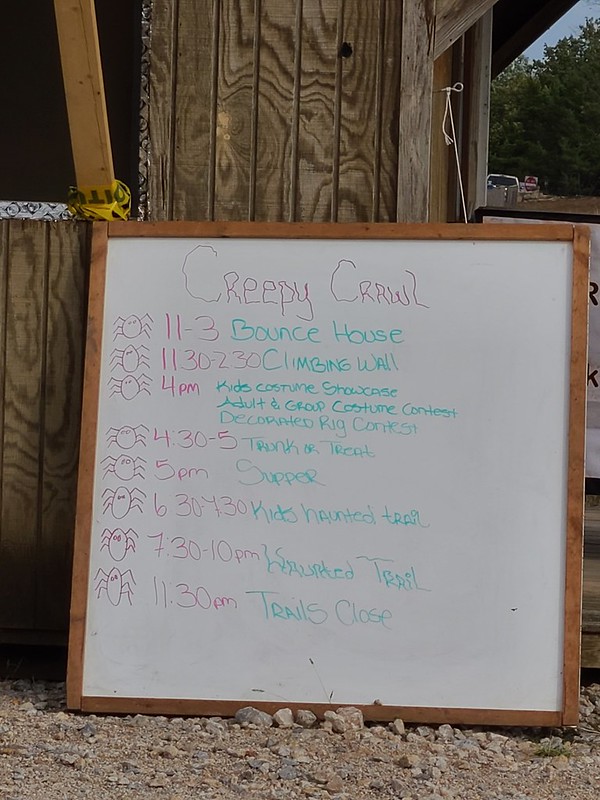 Creepy Crawl
11-3 Bounce House
11:30-2:30 Climbing Wall
4pm Kids Costume Showcase
Adult & Group Costume Contest
Decorated Rig Contest
4:30-5 Trunk or Treat
5pm Supper
6:30-7:30 Kids haunted trail
7:30-10pm Haunted Trail
11:30pm Trails Close